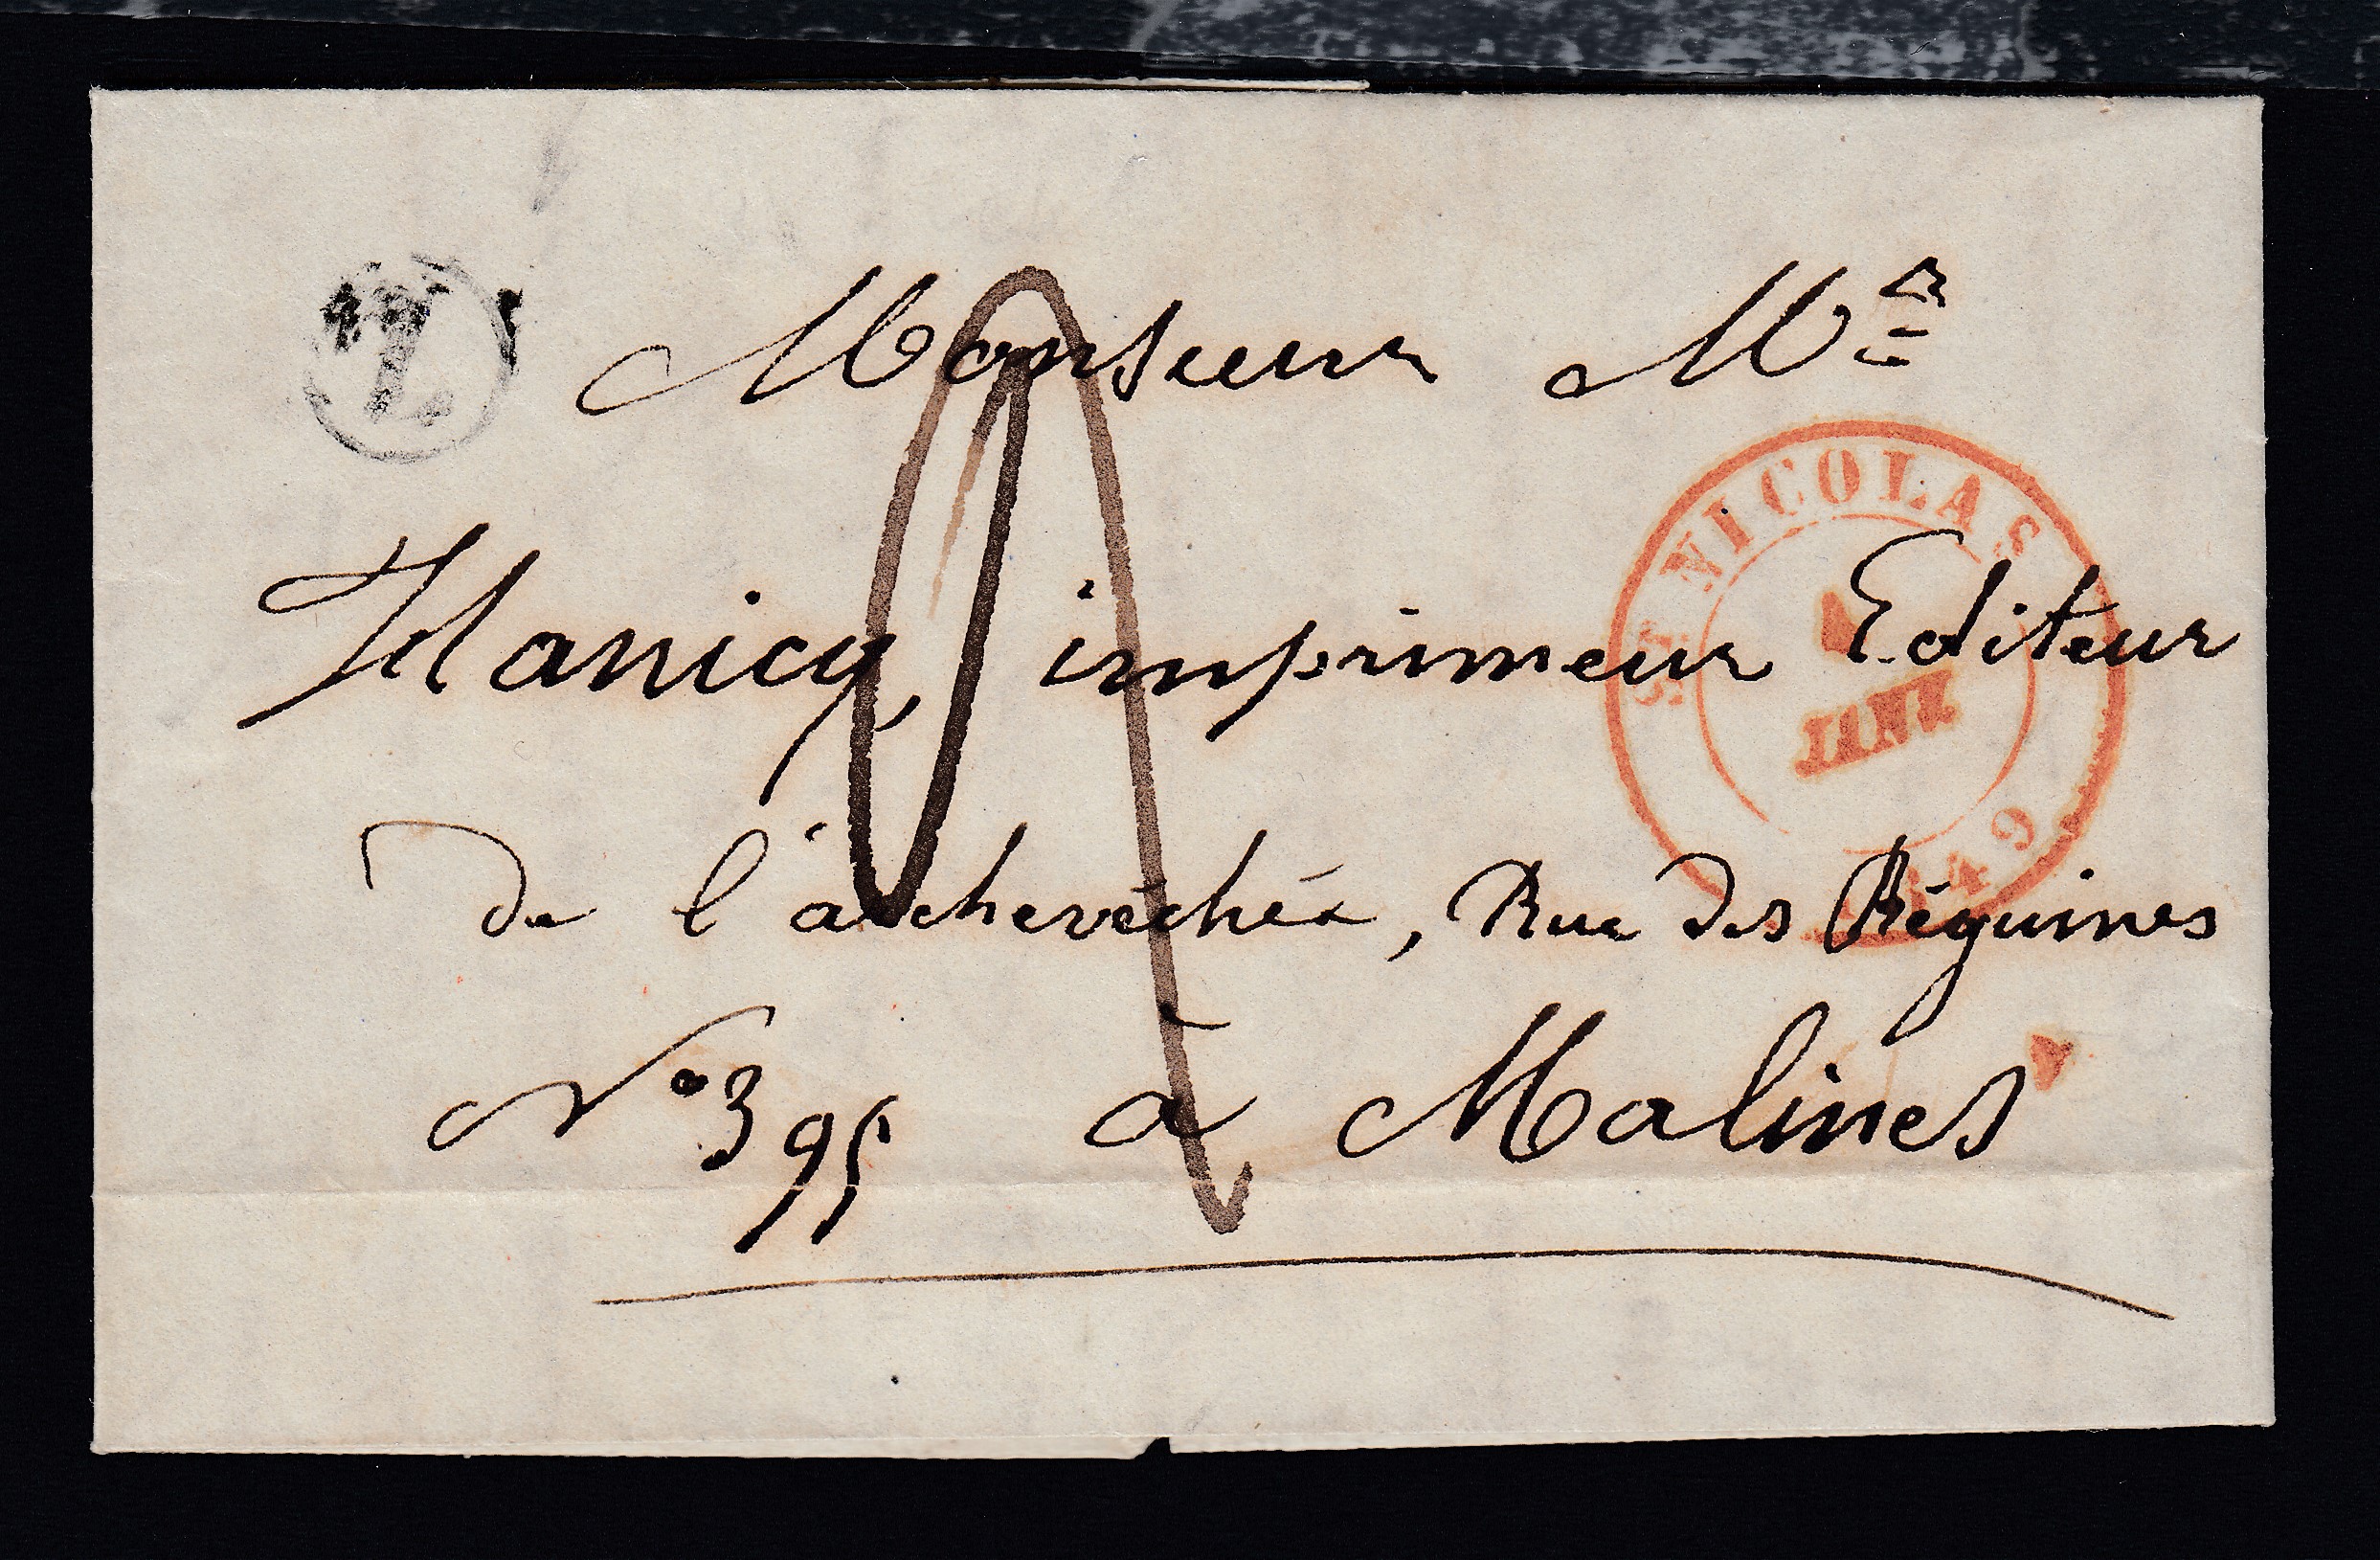 Z
Monsieur Mr
Hanicq, imprimeur Editeur
de l'archevêché, Rue des Béguines
N° 395 à Malines
ST NICOLAS
JANV.
1849